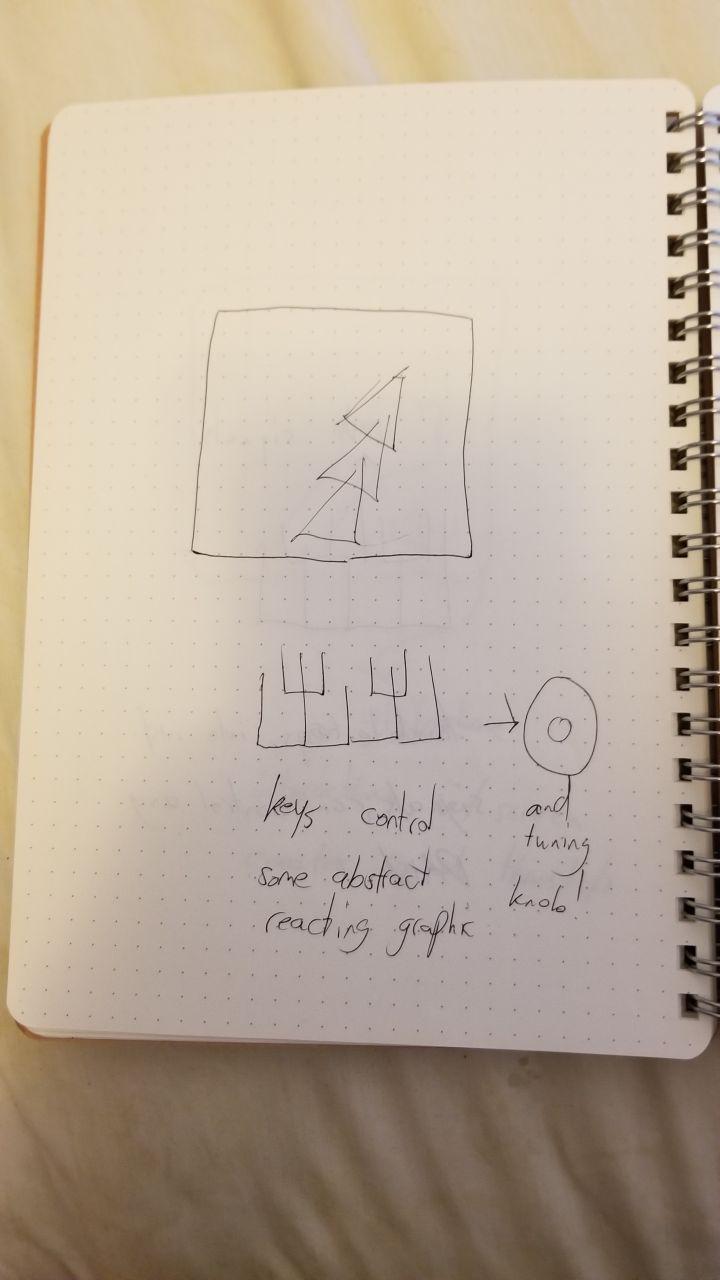 keys control
some abstract
reacting graphic
and
tuning
knob